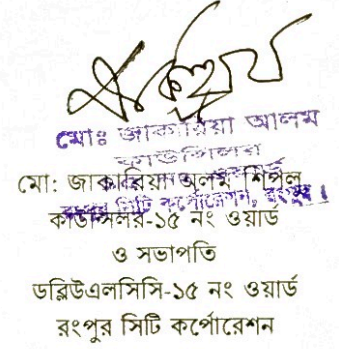 মোঃ জাকারিয়া আলম
কাউন্সিলর
রংপুর সিটি কর্পোরেশন, রংপুর।
মো: জাকারিয়া আলম শিপলু
কাউন্সিলর-১৫ নং ওয়ার্ড
ও সভাপতি
ডব্লিউএলসিসি-১৫ নং ওয়ার্ড
রংপুর সিটি কর্পোরেশন